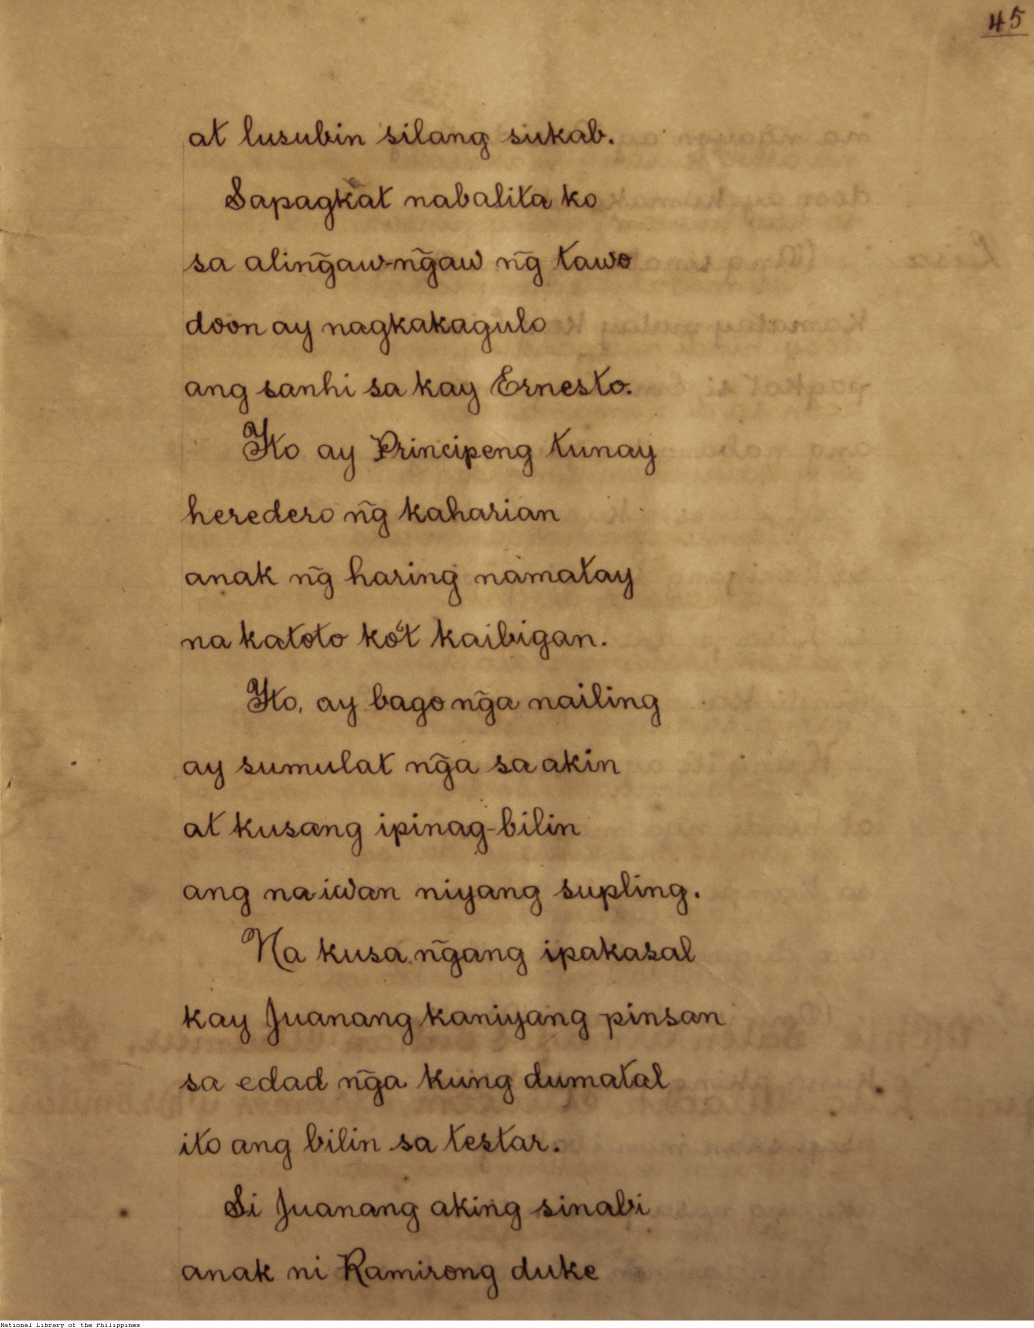 45
at lusubin silang sukab.
Sapagkat nabalita ko
sa alinḡaw-nḡaw nḡ tawo
doon ay nagkakagulo
ang sanhi sa kay Ernesto.
Ito ay Principeng tunay
heredero nḡ kaharian
anak nḡ haring namatay
na katoto ko't kaibigan.
Ito, ay bago nḡa nailing
ay sumulat nḡa sa akin
at kusang ipinag-bilin
ang naiwan niyang supling.
Na kusa nḡang ipakasal
kay Juanang kaniyang pinsan
sa edad nḡa kung dumatal
ito ang bilin sa testar.
Si Juanang aking sinabi
anak ni Ramirong duke
National Library of the Philippines